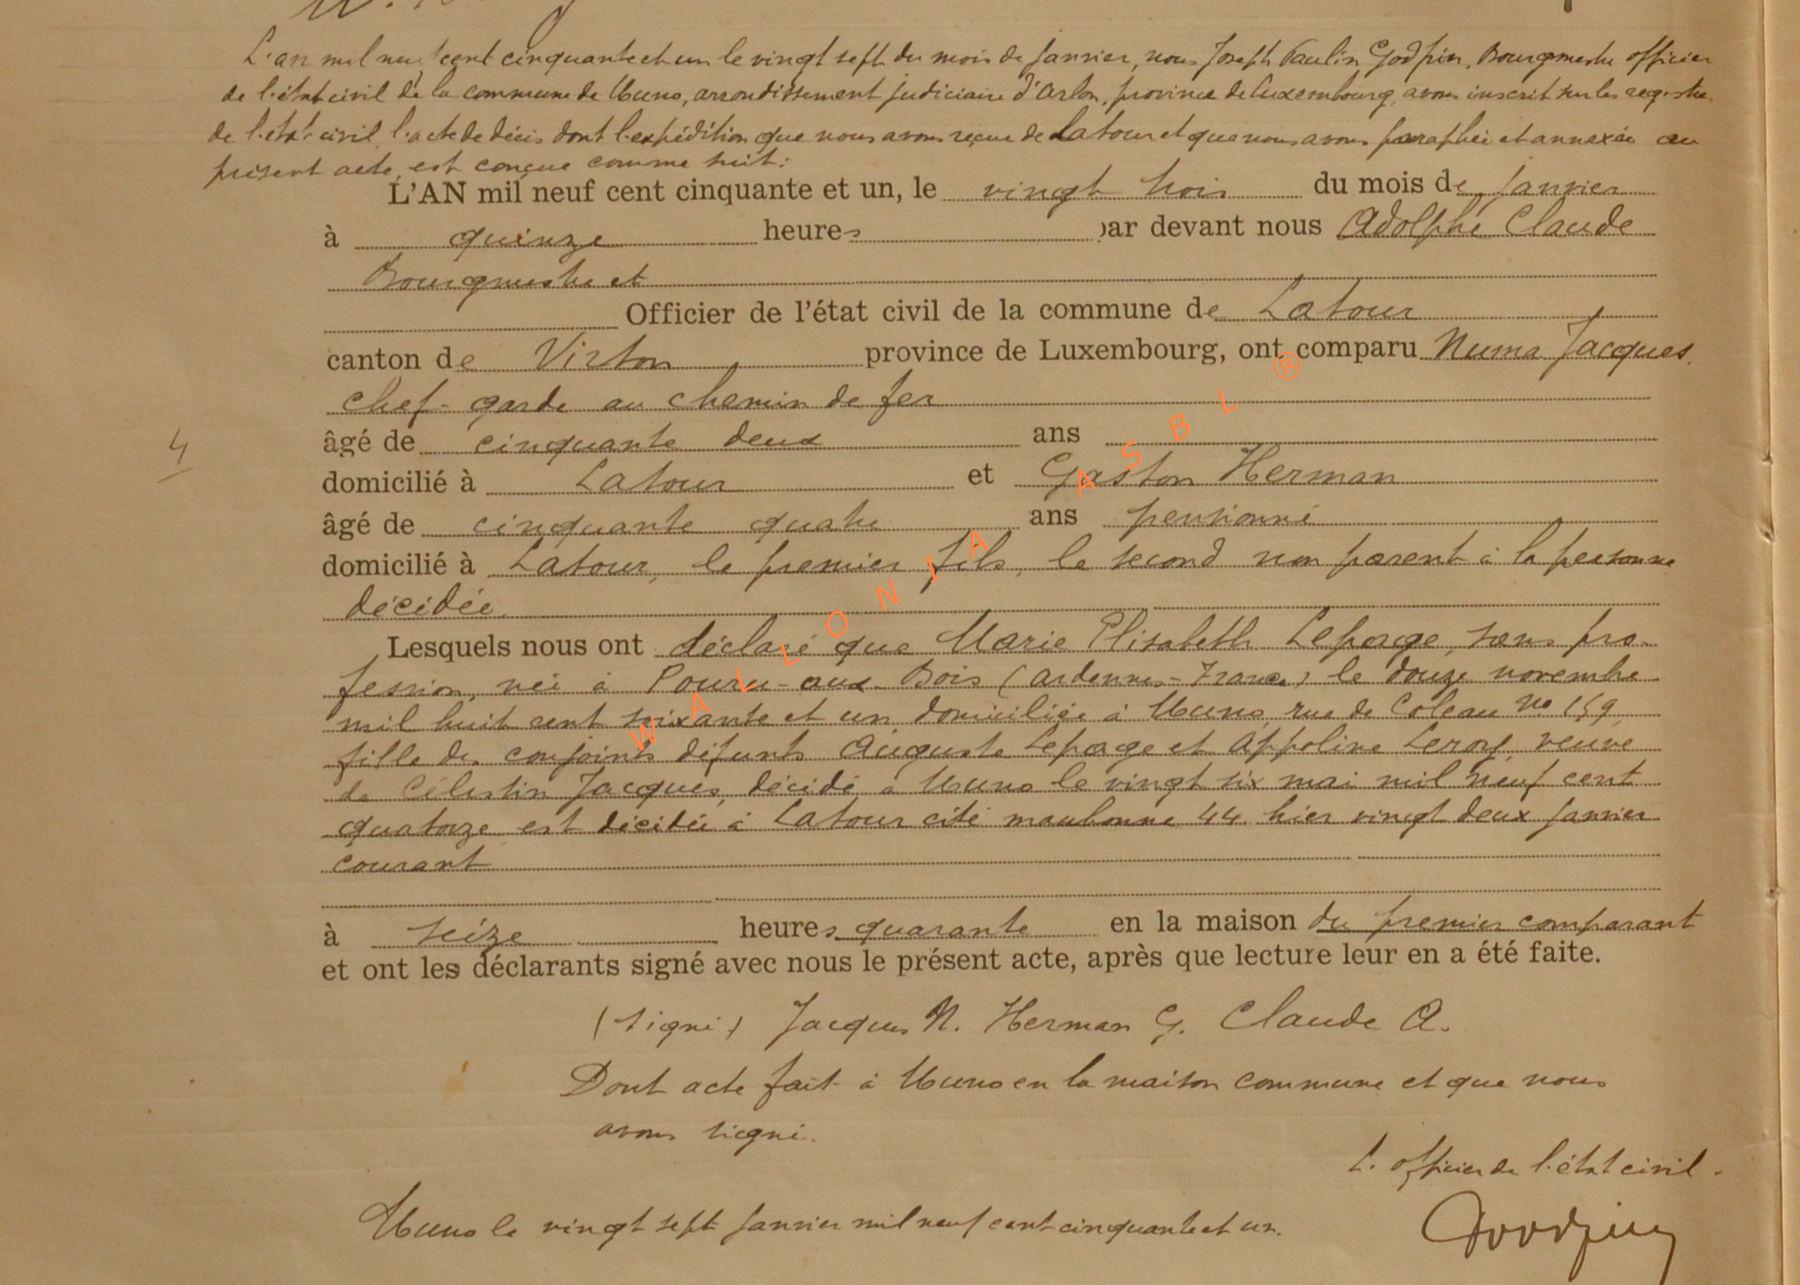 L'an mil neuf cent cinquante et un le vingt sept du mois de janvier, nous Joseph Paulin Godfrin, Bourgmestre officier
de l'état civil de la commune de Muno, arrondissement judiciaire d'Arlon, province de Luxembourg, avons inscrit sur les registres
de l'état civil l'acte de décès dont l'expédition que nous avons reçue de Latour et que nous avons paraphée et annexée au
présent acte, est conçue comme suit:
L'AN mil neuf cent cinquante et un, le vingt trois du mois de janvier
à quinze heures par devant nous Adolphe Claude
Bourgmestre et
Officier de l'état civil de la commune de Latour
canton de Virton province de Luxembourg, ont comparu Numa Jacques
chef-garde au chemin de fer
âgé de cinquante deux ans
4
domicilié à Latour et Gaston Herman
âgé de cinquante quatre ans pensionné
domicilié à Latour, le premier fils, le second non parent à la personne
décédée.
Lesquels nous ont déclaré que Marie Elisabeth Lepage, sans pro-
fession, née à Pouru-aux-Bois (Ardennes-France) le douze novembre
mil huit cent soixante et un domiciliée à Muno, rue de Coleau No 159,
fille des conjoints défunts Auguste Lepage et Appoline Leroy, veuve
de Célestin Jacques, décédé à Muno le vingt six mai mil neuf cent
quatorze est décédée à Latour cité maubonne 44 hier vingt deux janvier
courant
à seize heures quarante en la maison du premier comparant
et ont les déclarants signé avec nous le présent acte, après que lecture leur en a été faite.
(signé) Jacques N. Herman G. Claude A.
Dont acte fait à Muno en la maison commune et que nous
avons signé.
L'officier de l'état civil.
Muno le vingt sept janvier mil neuf cent cinquante et un.
Godfrin
WALLONIA ASBL ®